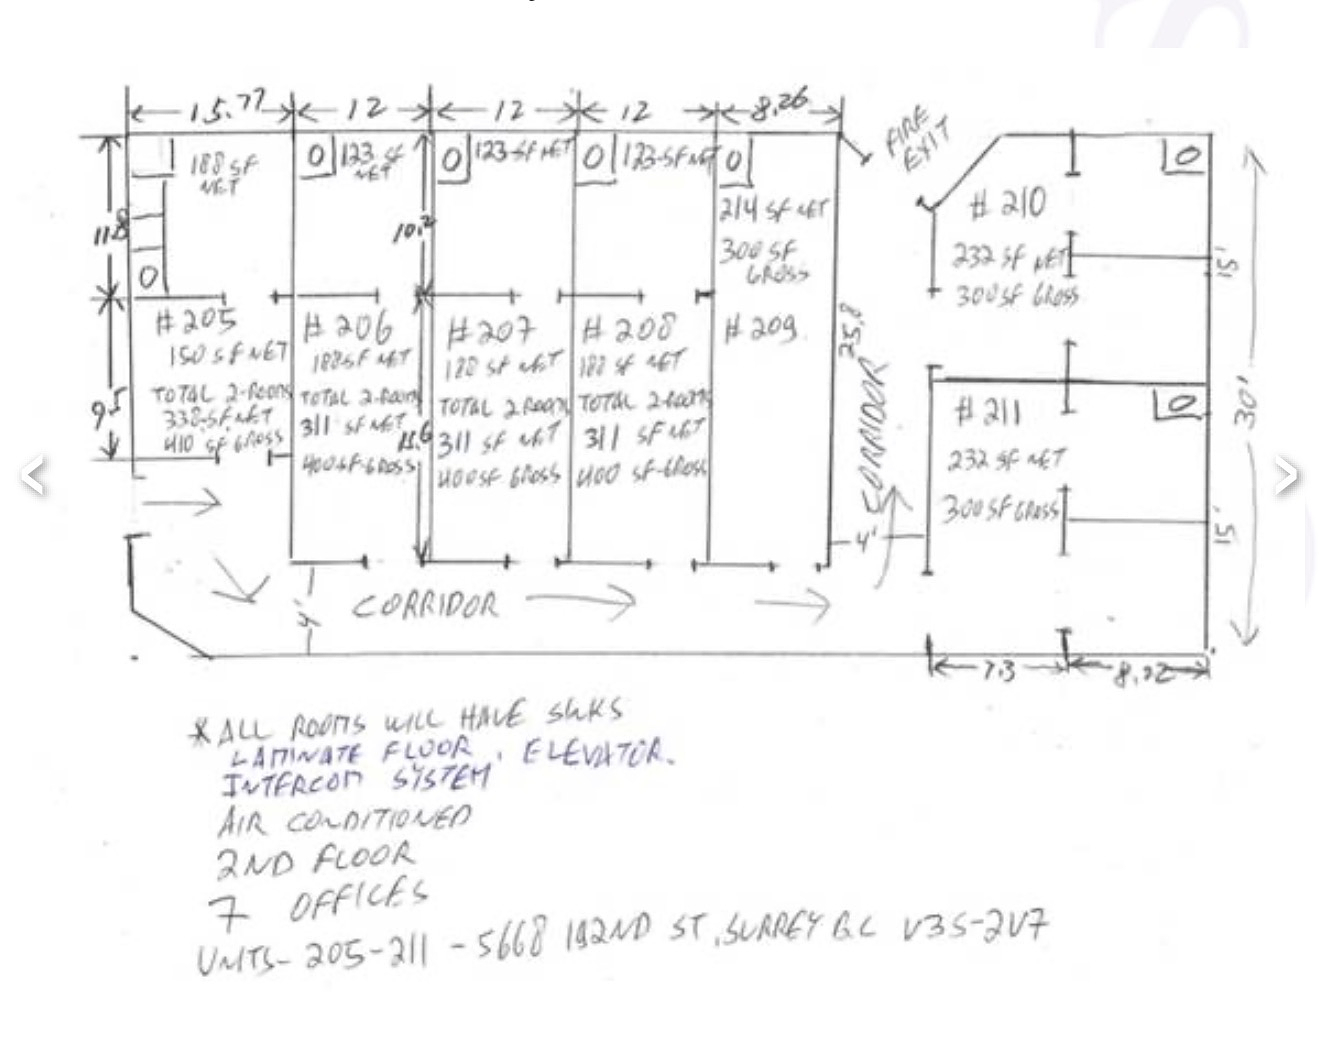 15.77
12
12
12
8.26
FIRE
EXIT
188 SF
NET
123 SF
NET
123-SF NET
123-SF NET
214 SF NET
300 SF
GROSS
11.8
10.2
#205
150 SF NET
TOTAL 2-ROOMS
338-SF NET
410 SF GROSS
9.5
#206
188 SF NET
TOTAL 2-ROOM
311 SF NET
400 SF-GROSS
15.6
#207
188 SF NET
TOTAL 2 ROOM
311 SF NET
400 SF GROSS
#208
188 SF NET
TOTAL 2-ROOM
311 SF NET
400 SF-GROSS
#209
25.8
CORRIDOR
4'
#210
232 SF NET
300 SF GROSS
15'
30'
#211
232 SF NET
300 SF GROSS
15'
4'
CORRIDOR
7.3
* ALL ROOMS WILL HAVE SINKS
LAMINATE FLOOR, ELEVATOR.
INTERCOM SYSTEM
AIR CONDITIONED
2ND FLOOR
7 OFFICES
UNITS- 205-211 - 5668 192ND ST, SURREY B.C V3S-2V7